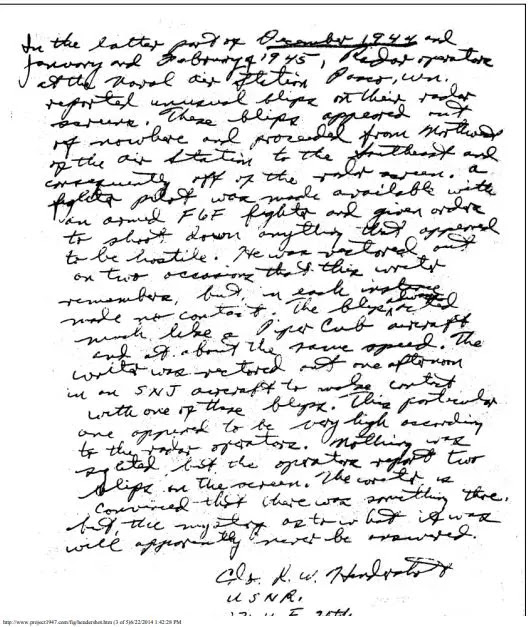 In the latter part of December 1944 and
January and February of 1945, Radar operators
at the Naval Air Station Pasco, Wn.
reported unusual blips on their radar
screens. These blips appeared out
of nowhere and proceeded from Northwest
of the air station to the Southeast and
consequently off of the radar screen. A
fighter pilot was made available with
an armed F6F fighter and given orders
to shoot down anything that appeared
to be hostile. He was vectored out
on two occasions that this writer
remembers, but in each instance
made no contact. The blips always acted
much like a Piper Cub aircraft
and at about the same speed. The
writer was vectored out one afternoon
in an SNJ aircraft to make contact
with one of these blips. This particular
one appeared to be very high according
to the radar operators. Nothing was
sighted but the operators report two
blips on the screen. The writer is
convinced that there was something there,
but the mystery as to what it was
will apparently never be answered.
R. W. Hendershot
USNR.
http://www.project1947.com/fig/hendershot.htm (3 of 5)6/22/2014 1:42:28 PM